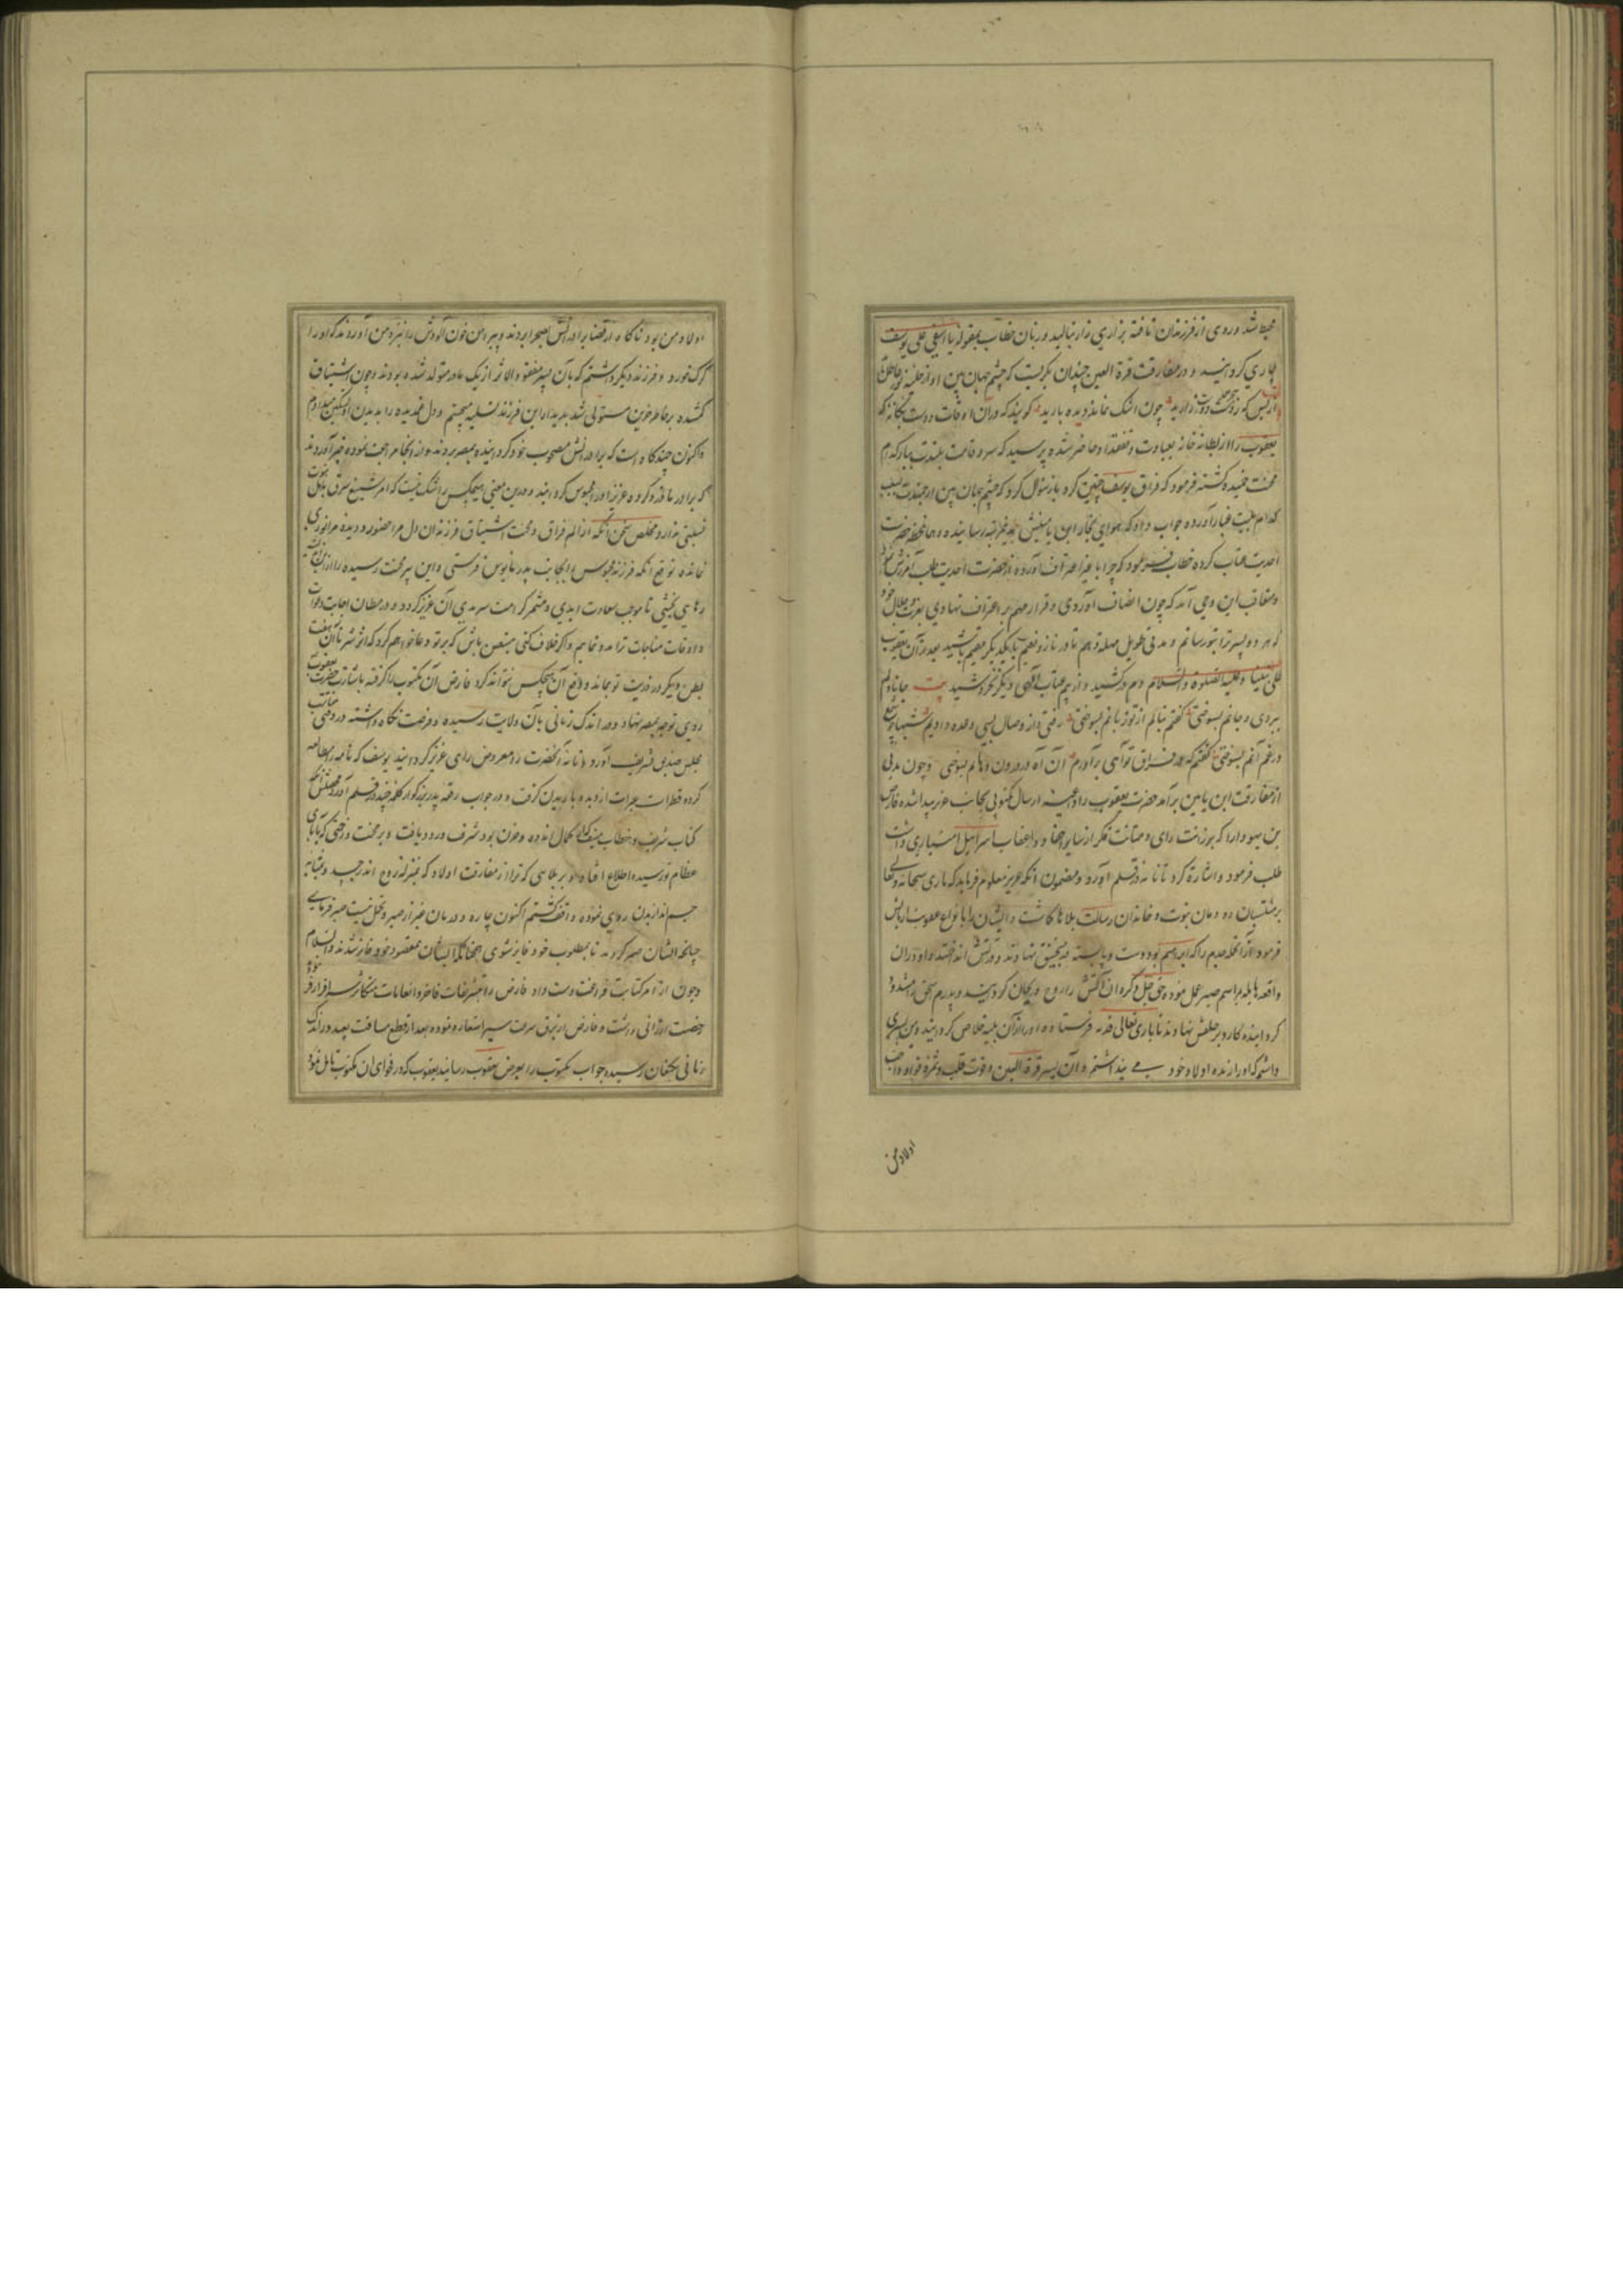 محیط شد و روی از فرزندان تافته بزاری زار بنالید و زبان خطاب بمقوله یا اسفی علی یوسف
جاری کردانید و در مفارقت قرة العین چندان بکریست که چشم جهان بین او از حلیه نور عاطل
چون اشک نماند دیده بارید کویند که در آن اوقات دوست یکانه که
یعقوب را از بطانه خانه بعیادت و تفقد او حاضر شده پرسید که سرو قامت بلندت ببار کدام
محنت خمیده کشته فرمود که فراق یوسف چنین کرد باز سئوال کرد که چشم جهان بین ارجمندت بسبب
کدام بلیت غبار آورده جواب داد که هوای بنیامین بدین مرتبه رسانیده و هما لحظه حضرت
احدیت عتاب کرده خطاب فرمود که چرا با غیر اعتراف آورده از حضرت احدیت طلب آمرزش
و متعاقب این وحی آمد که چون انصاف آوردی و قرار مهم بر اعتراف نهادی بعزت و جلال خود
که هر دو پسر ترا بتو رسانم و مدتی طویل مهلت دهم تا در ناز و نعیم با یکدیکر مقیم باشید بعد از آن یعقوب
علی نبینا و علیه الصلوة والسلام دم درکشید و از بیم عتاب الهی دیکر نخروشید بیت جانا دلم
ببردی و جانم بسوختی کفتم بنالم از تو زبانم بسوختی رفتی و از وصال بسی وعده دادیم شبها چو شمع
در غم آنم بسوختی کفتم که در فراق تو آهی برآورم آن آه در درون دهانم بسوختی و چون مدتی
از مفارقت ابن یامین برآمد حضرت یعقوب را داعیه ارسال مکتوبی بجانب عزیز پیدا شده فارض
بن یهودا را که برزانت رای و متانت فکر از سایر احفاد و اعقاب اسرائیل امتیازی داشت
طلب فرمود و اشارت کرد تا نامه در قلم آورد و مضمون آنکه عزیز معلوم فرماید که باری سبحانه و تعالی
بر منتسبان دودمان نبوت و خاندان رسالت بلاها کاشت و ایشان را بانواع عقوبت آزمایش
فرمود از آنجمله جدم را که ابراهیم بود دست و پا بسته در منجنیق نهادند و در آتش انداختند و او در آن
واقعه هایله مراسم صبر عمل نموده حق جل ذکره آن آتش را روح و ریحان کردانید و پدرم اسحق را
کردانیده کارد بر حلقش نهادند تا باری تعالی فدیه فرستاده او را از آن بلیه خلاص کردانید و من پسری
داشتم که او را زبده اولاد خود می پنداشتم و آن پسر قرة العین و قوت قلب و ثمره فؤاد و احب
اولاد من
اولاد من بود ناکاه از قضا برادرانش بصحرا بردند و پیراهن خون آلودش را نزد من آوردند که او را
کرک خورد و فرزند دیکر داشتم که با آن پسر مفقود الاثر از یک مادر متولد شده بودند و چون اشتیاق
کمشده بر خاطر حزین مستولی شد بدیدار این فرزند تسلیه میجستم و دل غمدیده را بدیدن او تسکین میدادم
و اکنون چندکاه است که برادرانش مصحوب خود کردانیده بمصر بردند و از آنجا مراجعت نموده خبر آوردند
که برادر ما دزدی کرده عزیز او را محبوس کردانید و درین معنی هیچکس را شک نیست که امر شنیع سرقه باهل نبوت
نسبتی ندارد و ملخص سخن آنکه از الم فراق و محنت اشتیاق فرزندان دل مرا حضور و دیده مرا نوری
نمانده توقع آنکه فرزند محبوس را بجانب پدر مأیوس فرستی و این پیر محنت رسیده را از زندان
رهایی بخشی تا موجب سعادت ابدی و مثمر کرامت سرمدی آن عزیز کردد و در مظان اجابت دعوات
و اوقات مناجات ترا مدد نمایم و اکر خلاف کنی متیقن باش که بر تو دعا خواهم کرد که اثر شر آن تا هفت
بطن دیکر در ذریت تو بماند و دفع آن هیچکس نتواند کرد فارض آن مکتوب را کرفته باشارت حضرت یعقوب
روی توجه بمصر نهاد و در اندک زمانی بآن ولایت رسیده و فرصت نکاه داشته در وقتی مناسب
مجلس صدیق تشریف آورد و نامه آنحضرت را معروض رای عزیز کردانید یوسف که نامه را مطالعه
کرده قطرات عبرات از دیده باریدن کرفت و در جواب رقعه پدر بزرکوار کلمه چند در قلم آورد مضمون آنکه
کتاب شریف و خطاب منیف که از کمال اندوه و حزن بود شرف ورود یافت و بر محنت و زحمتی که بآبای
عظام تو رسیده اطلاع افتاد و بر بلایی که ترا از مفارقت اولاد که بمنزله روح اند در جسد و بمثابه
جسم اند از بدن روی نموده واقف کشتم اکنون چاره و درمان غیر از صبر و تحمل نیست صبر فرمای
چنانچه ایشان صبر کردند تا بمطلوب خود فایز شوی همچنانکه ایشان بمقصود خود فایز شدند والسلام
و چون از امر کتابت فراغت دست داد فارض را بتشریفات فاخر و انعامات متکاثر سرافراز نموده
رخصت ارزانی داشت و فارض از برق سرعت سیر استعاره نموده بعد از قطع مسافت بعید در اندک
زمانی بکنعان رسیده جواب مکتوب را بعرض یعقوب رسانید یعقوب که در فحوای آن مکتوب تأمل نمود